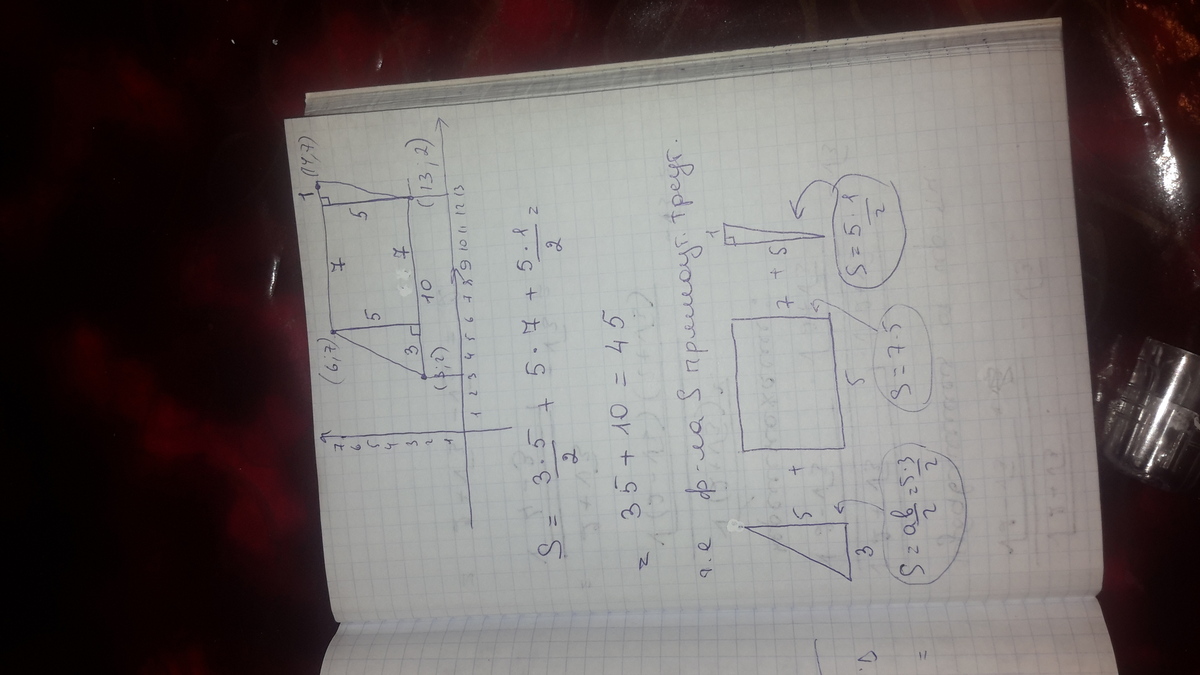 (6;7) 7 1 (14,7)
7
6
5
4
3
2
1
5 5
3 10 7
(3;2) (13;2)
1 2 3 4 5 6 7 8 9 10 11 12 13
S = 3·5/2 + 5·7 + 5·1/2 =
= 35 + 10 = 45
т.е ф-ла S прямоуг. треуг.
1
5 + 7 + 5
3 5
S = ab/2 = 5·3/2 S = 7·5 S = 5·1/2